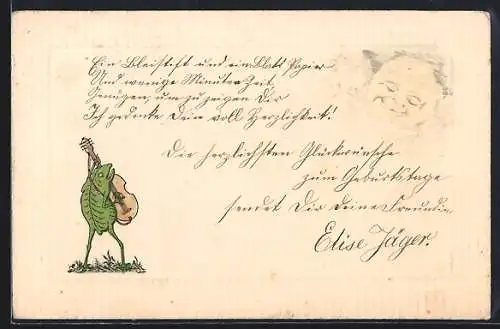 Ein Bleistift und ein Blatt Papier
Und wenige Minuten Zeit
Genügen, um zu zeigen Dir
Ich gedenke Dein voll Herzlichkeit!
Die herzlichsten Glückwünsche
zum Geburtstage
sendet Dir Deine Freundin
Elise Jäger.